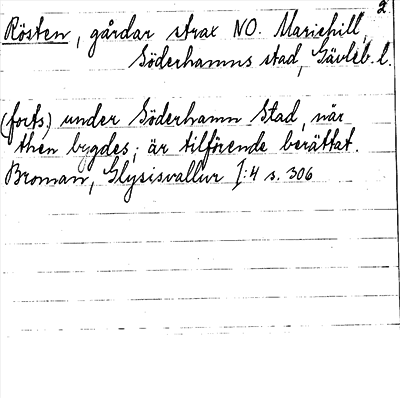 2
Rösten, gårdar strax NO. Mariehill,
Söderhamns stad, Gävleb. l.
(forts) under Söderhamn Stad, när
then bygdes; är tilförende berättat.
Broman, Glysisvallur I:4 s. 306